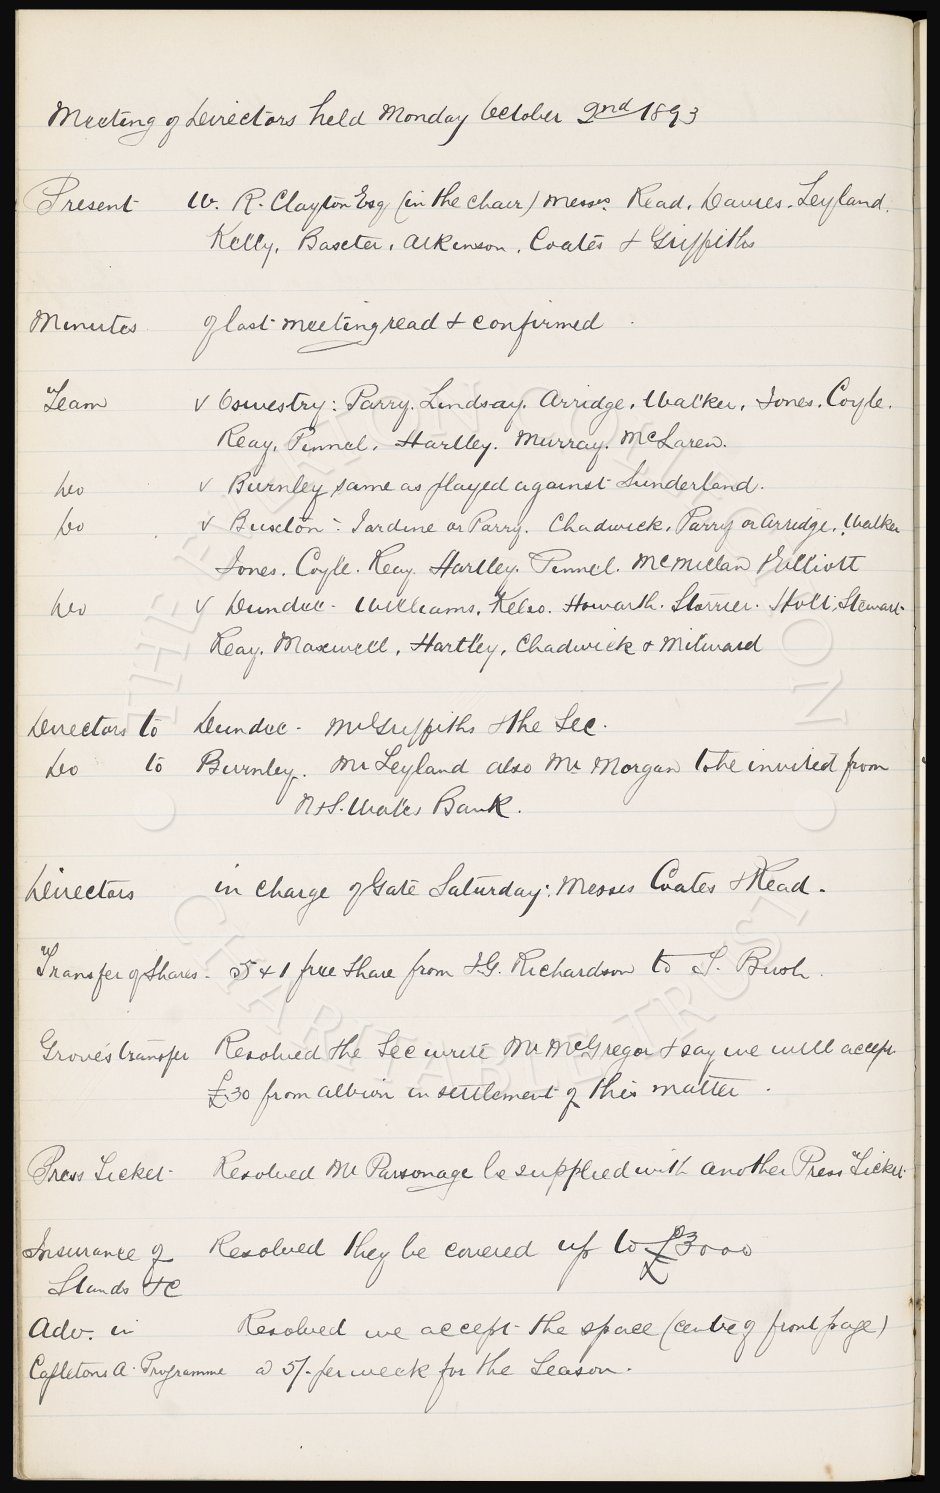 Meeting of Directors held Monday October 2nd 1893
Present W. R. Clayton Esq (in the chair) Messrs. Read, Davies, Leyland,
Kelly, Baxter, Atkinson, Coates & Griffiths
Minutes of last meeting read & confirmed
Team v Oswestry: Parry, Lindsay, Arridge, Walker, Jones, Coyle,
Reay, Pinnel, Hartley, Murray, McLaren.
Do v Burnley same as played against Sunderland.
Do v Buxton - Jardine or Parry, Chadwick, Parry or Arridge, Walker
Jones, Coyle, Reay, Hartley, Pinnel, McMillan & Elliott
Do v Dundee - Williams, Kelso, Howarth, Storrier, Holt, Stewart
Reay, Maxwell, Hartley, Chadwick & Milward
Directors to Dundee - Mr Griffiths & the Sec.
Do to Burnley. Mr Leyland also Mr Morgan to be invited from
N & S. Wales Bank.
Directors in charge of Gate Saturday: Messrs Coates & Read.
Transfer of Shares - 5 & 1 free share from J.G. Richardson to S. Bush.
Grove's transfer Resolved the Sec write Mr McGregor & say we will accept
£30 from Albion in settlement of this matter.
Press Ticket Resolved Mr Parsonage be supplied with another Press Ticket
Insurance of Resolved they be covered up to £3000
Stands &c
Adv. in Resolved we accept the space (centre of front page)
A. Programme @ 5/- per week for the Season.
THE EVERTON COLLECTION
CHARITABLE TRUST